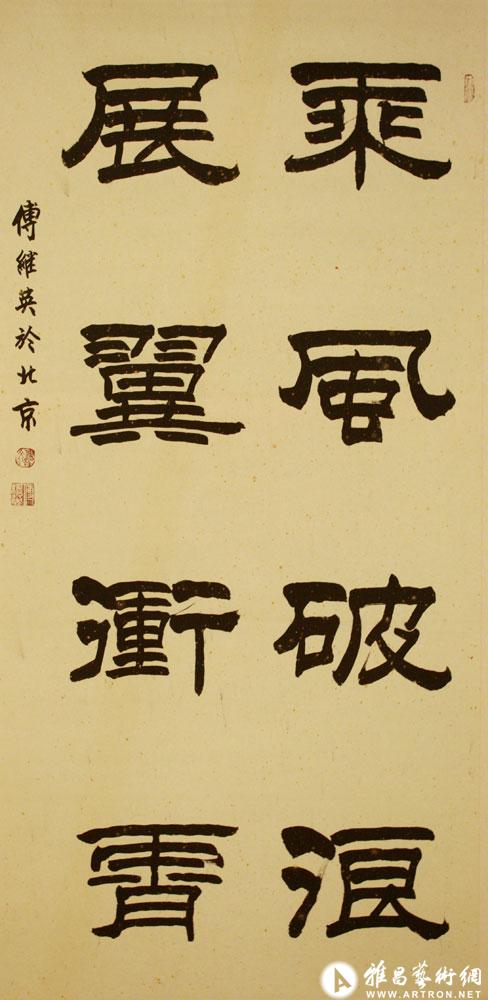 乘風破浪
展翼衝霄
傅繼英於北京
雅昌藝術網
WWW.ARTRON.NET